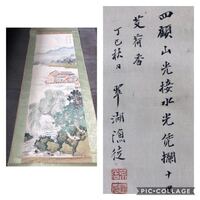 四顧山光接水光凭欄十里
芰荷香
丁巳秋日 翠湖漁徒
PIC•COLLAGE